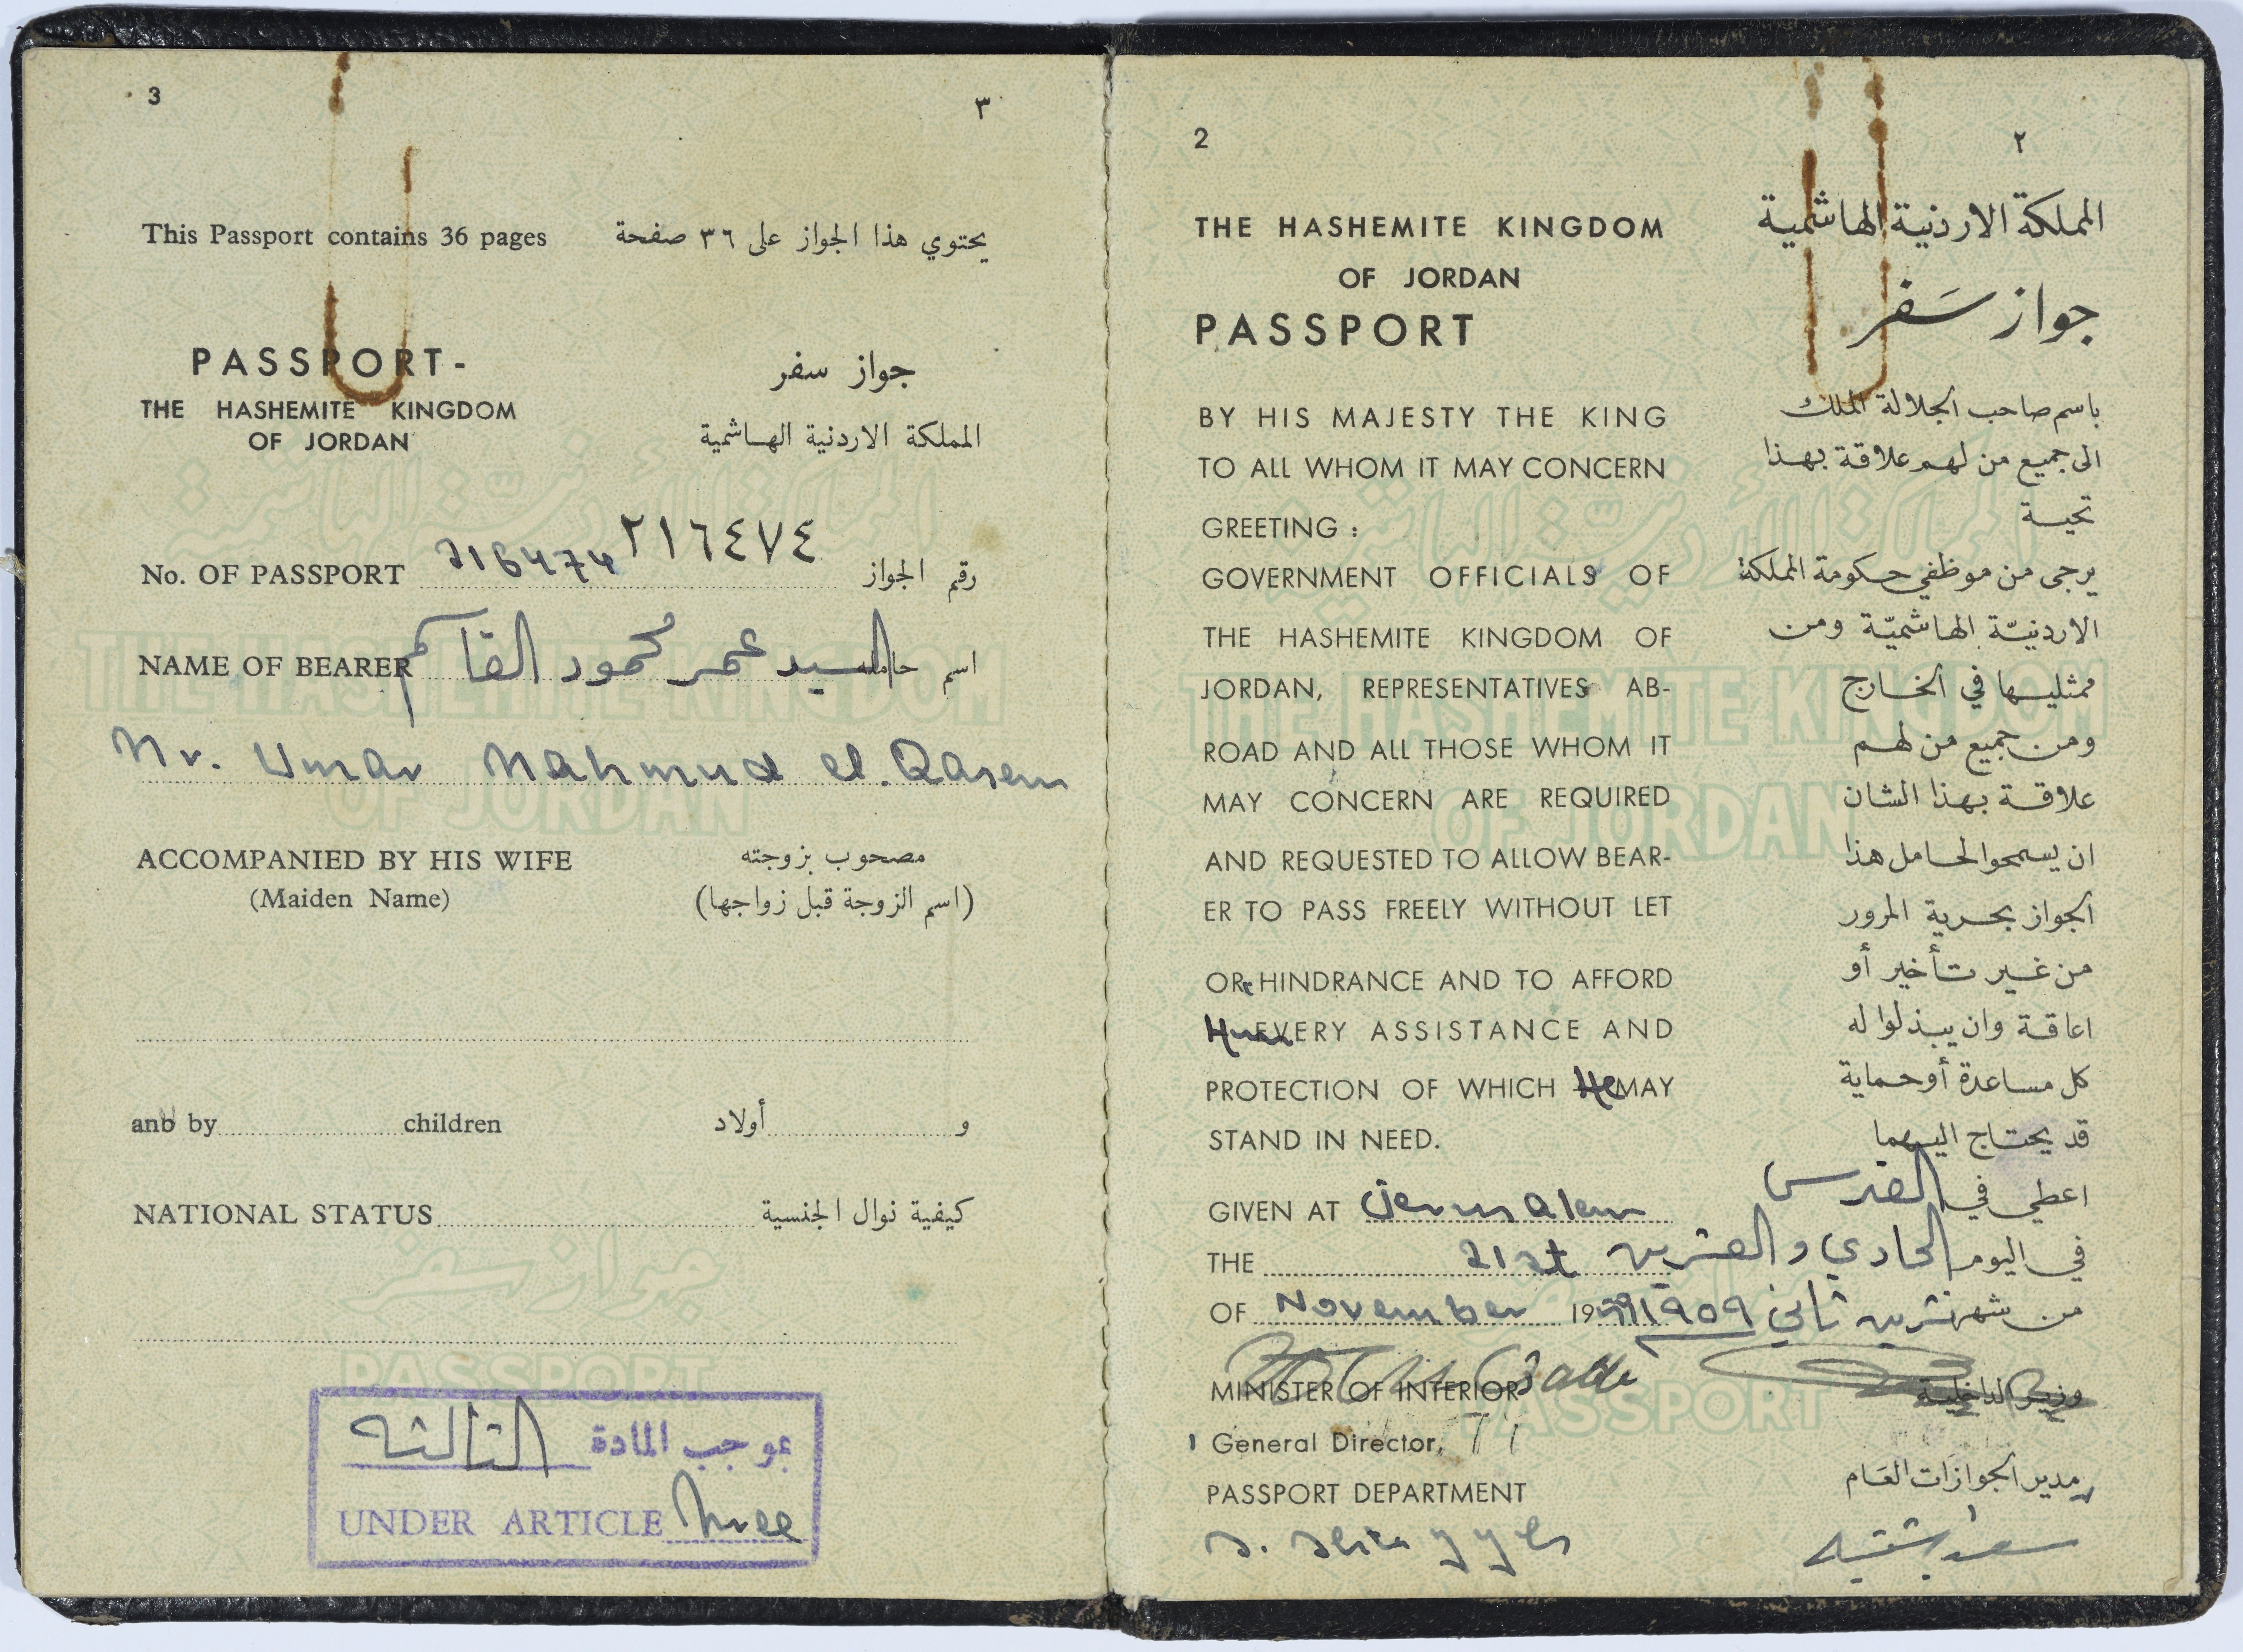 3 ٣
This Passport contains 36 pages يحتوي هذا الجواز على ٣٦ صفحة
PASSPORT- جواز سفر
THE HASHEMITE KINGDOM
OF JORDAN المملكة الاردنية الهاشمية
No. OF PASSPORT 216474 ٢١٦٤٧٤ رقم الجواز
NAME OF BEARER السيد عمر محمود القاسم اسم حامله
Mr. Umar Mahmud el. Qasem
ACCOMPANIED BY HIS WIFE مصحوب بزوجته
(Maiden Name) (اسم الزوجة قبل زواجها)
and by children و أولاد
NATIONAL STATUS كيفية نوال الجنسية
بموجب المادة الثالثه
UNDER ARTICLE three
2 ٢
THE HASHEMITE KINGDOM المملكة الاردنية الهاشمية
OF JORDAN
PASSPORT جواز سَفر
BY HIS MAJESTY THE KING باسم صاحب الجلالة الملك
TO ALL WHOM IT MAY CONCERN الى جميع من لهم علاقة بهذا
GREETING : تحية
GOVERNMENT OFFICIALS OF يرجى من موظفي حكومة المملكة
THE HASHEMITE KINGDOM OF الاردنيّة الهاشميّة ومن
JORDAN, REPRESENTATIVES AB- ممثليها في الخارج
ROAD AND ALL THOSE WHOM IT ومن جميع من لهم
MAY CONCERN ARE REQUIRED علاقة بهذا الشان
AND REQUESTED TO ALLOW BEAR- ان يسمحوا لحامل هذا
ER TO PASS FREELY WITHOUT LET الجواز بحرية المرور
OR HINDRANCE AND TO AFFORD من غير تأخير أو
EVERY ASSISTANCE AND اعاقة وان يبذلوا له
PROTECTION OF WHICH He MAY كل مساعدة أو حماية
STAND IN NEED. قد يحتاج اليهما
GIVEN AT Jerusalem اعطي في القدس
THE 21st في اليوم الحادي والعشرين
OF November 1959 من شهر تشرين ثاني ١٩٥٩
MINISTER OF INTERIOR وزير الداخلية
General Director,
PASSPORT DEPARTMENT مدير الجوازات العَام